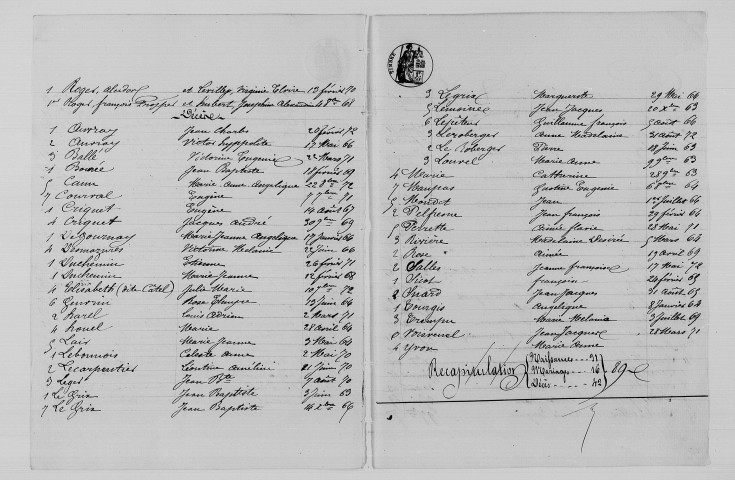 1 Roger, et Levilly, Virginie Eloïre 13 février 70
1er Roger, François Prosper et Aubert, Joséphine 4 8bre 68
Décès
1 Auvray Jean Charles 20 février 72
2 Auvray Victor Hyppolite 17 Mai 66
3 Ballé Victorine Eugenie 22 Mars 71
1 Bonnée Jean Baptiste 18 février 69
5 Caun Marie Anne Angélique 22 8bre 72
7 Courval Eugène 7 71
1 Criquet Eugène 14 août 67
4 Criquet Jacques André 30 9bre 69
1 Dégournay Marie Jeanne Angélique 17 Janvier 66
4 Desmazures Victorine Melanie 22 Juin 66
1 Duchemin Etienne 26 février 71
1 Duchemin Marie Jeanne 12 février 68
4 Elisabeth (dite Catel) Julie Marie 10 7bre 72
6 Rose 13 Juin 64
2 Harel Louis Adrien 2 Mars 71
4 Houel Marie 28 avril 64
5 Lair Marie Jeanne 3 Mai 64
1 Lebonnois Celeste Anne 2 Mai 70
2 Lecarpentier Léontine 21 Juin 70
3 Leger Jean Bte 7 août 70
1 Le Grix Jean Baptiste 3 Juin 63
7 Le Grix Jean Baptiste 14 Xbre 66
TIMBRE
3 Legrix Marguerite 29 Mai 64
5 Lemoine Jean Jacques 20 Xbre 63
6 Lepéteur Guillaume François 5 août 66
3 Leroberger Anne Madelaine 31 août 72
2 Le Roberger Pierre 18 Juin 63
3 Louvel Marie Anne 9 9bre 63
4 Marie Catherine 25 9bre 63
7 Maupas Gustive Eugenie 6 8bre 64
5 Mondet Jean 1er Juillet 66
2 Pelfresne Jean François 29 février 64
1 Perrette Aimée flavie 28 Mai 71
3 Rivière Madelaine Désirée 5 Mars 64
2 Rose Aimée 19 avril 69
2 Salles Jeanne Françoise 17 Mai 72
1 françoise 24 février 65
8 Suard Jean Jacques 31 août 65
1 Tourgis Angélique 8 Janvier 64
3 Marie Melania 3 Juillet 69
0 Jean Jacques 28 Mars 71
4 Yvon Marie Anne
Recapitulation { Naissances 31
Mariages 16
Décès 42 } 89